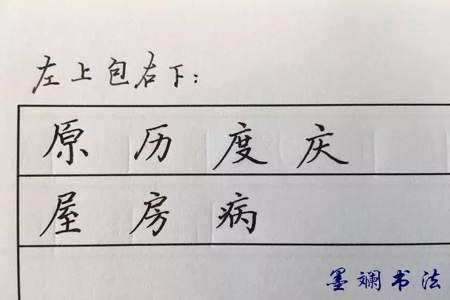 左上包右下：
原历度庆
屋房病
墨斓书法